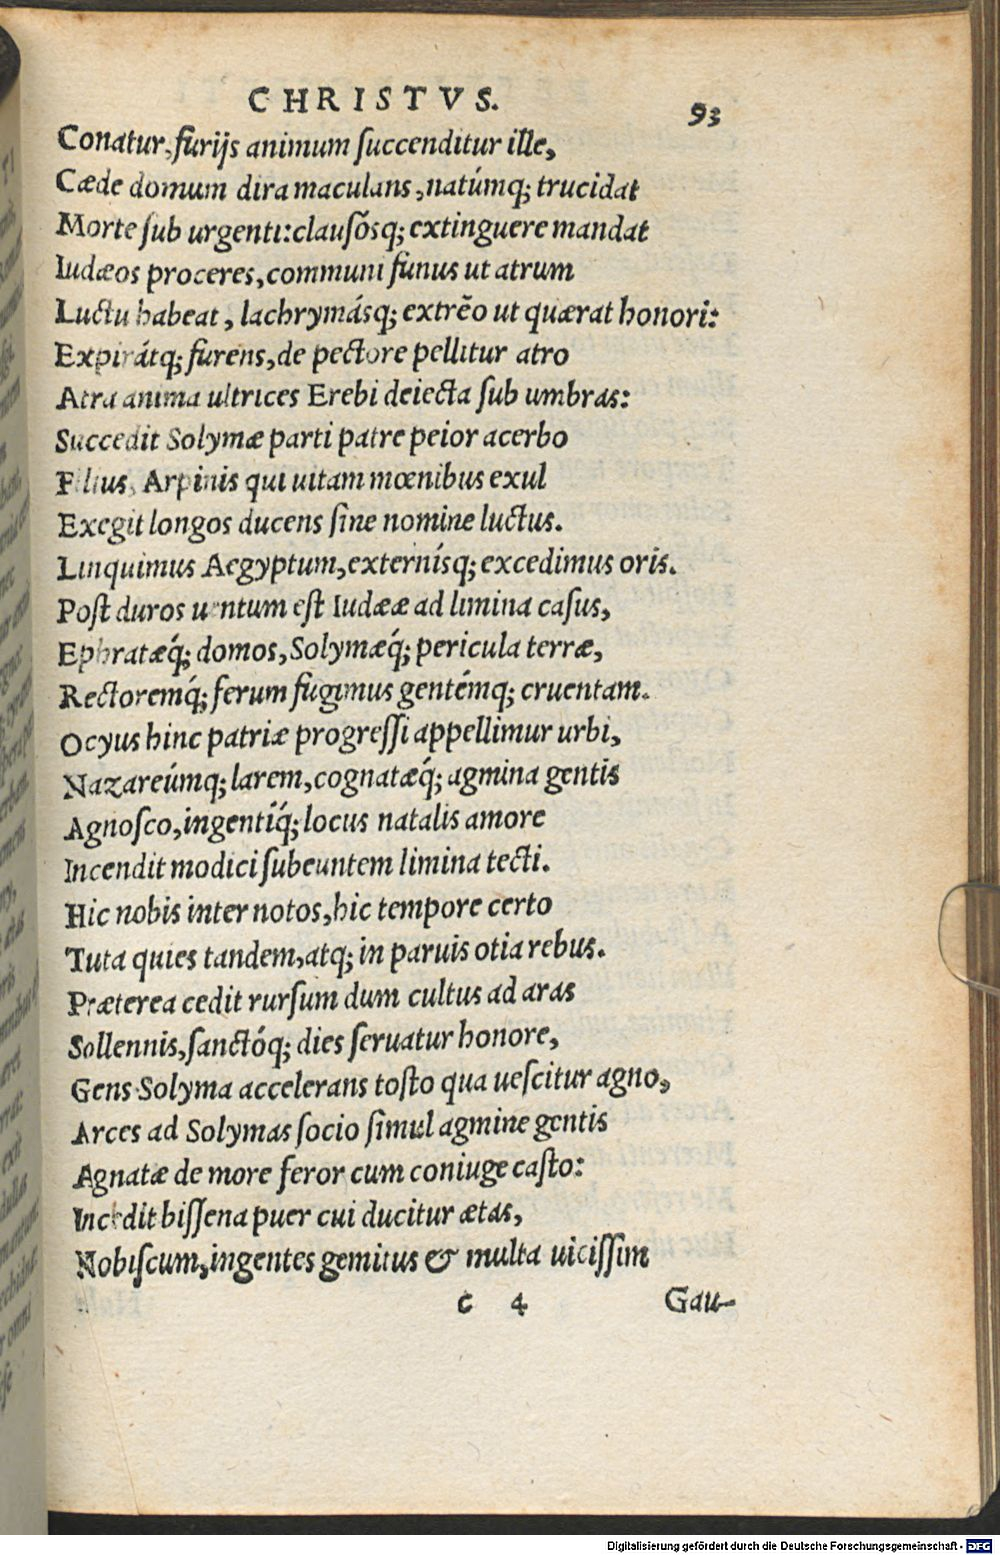 CHRISTVS. 93
Conatur, furijs animum ſuccenditur ille,
Cæde domum dira maculans, natúmq; trucidat
Morte ſub urgenti: clauſósq; extinguere mandat
Iudæos proceres, communi funus ut atrum
Luctu habeat, lachrymásq; extrẽo ut quærat honori:
Expirátq; furens, de pectore pellitur atro
Atra anima ultrices Erebi deiecta ſub umbras:
Succedit Solymæ parti patre peior acerbo
Filius, Arpinis qui uitam mœnibus exul
Exegit longos ducens ſine nomine luctus.
Linquimus Aegyptum, externísq; excedimus oris.
Poſt duros uentum eſt Iudææ ad limina caſus,
Ephratæq́; domos, Solymæq́; pericula terræ,
Rectoremq́; ferum fugimus gentémq; cruentam.
Ocyus hinc patriæ progreſſi appellimur urbi,
Nazareúmq; larem, cognatæq́; agmina gentis
Agnoſco, ingentiq́; locus natalis amore
Incendit modici ſubeuntem limina tecti.
Hic nobis inter notos, hic tempore certo
Tuta quies tandem, atq; in paruis otia rebus.
Præterea cedit rurſum dum cultus ad aras
Sollennis, ſanctóq; dies ſeruatur honore,
Gens Solyma accelerans toſto qua ueſcitur agno,
Arces ad Solymas ſocio ſimul agmine gentis
Agnatæ de more feror cum coniuge caſto:
Incedit biſſena puer cui ducitur ætas,
Nobiſcum, ingentes gemitus & multa uiciſſim
c 4 Gau-
Digitalisierung gefördert durch die Deutsche Forschungsgemeinschaft - DFG